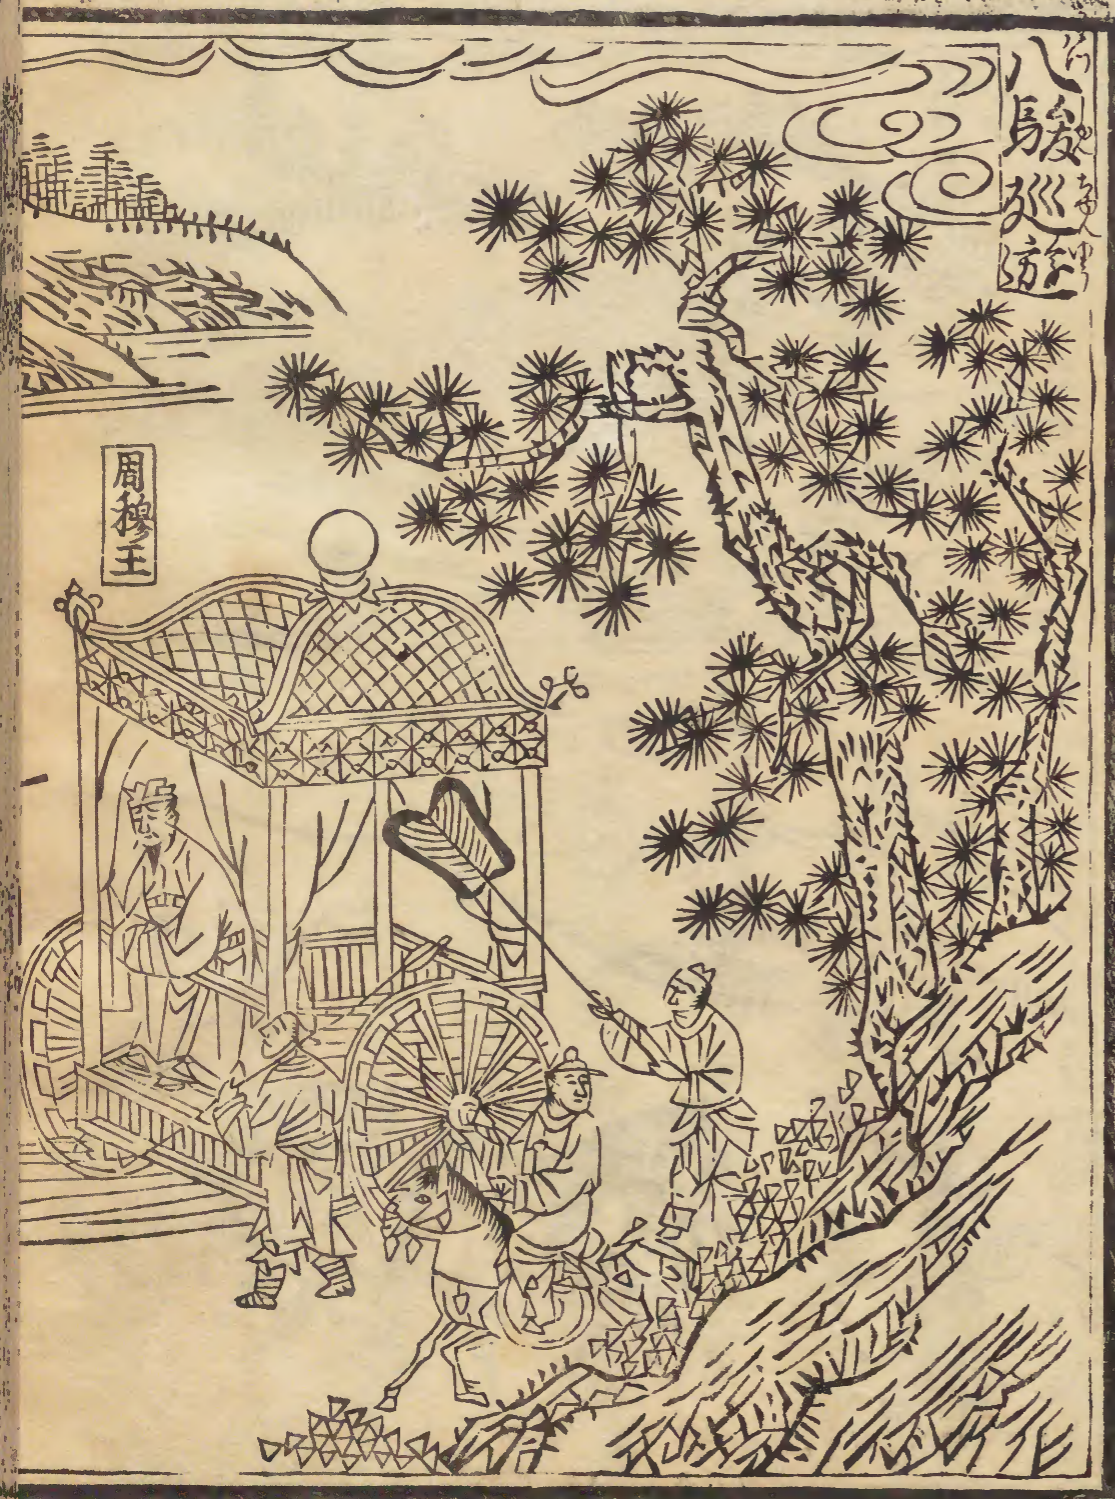 八駿巡遊
周穆王